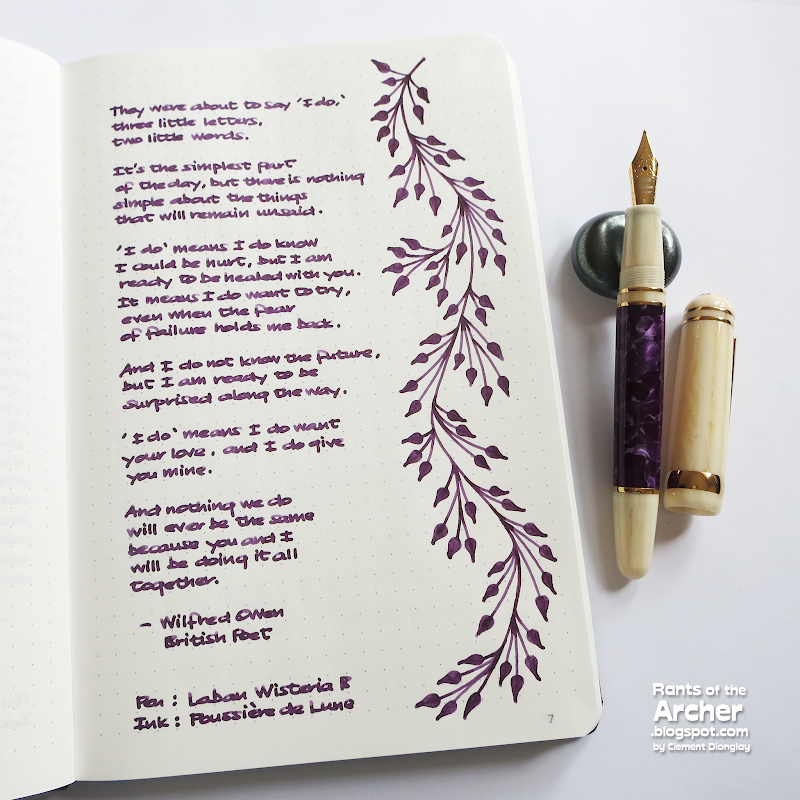 They were about to say 'I do,'
three little letters,
two little words.
It's the simplest part
of the day, but there is nothing
simple about the things
that will remain unsaid.
'I do' means I do know
I could be hurt, but I am
ready to be healed with you.
It means I do want to try,
even when the fear
of failure holds me back.
And I do not know the future,
but I am ready to be
surprised along the way.
'I do' means I do want
your love, and I do give
you mine.
And nothing we do
will ever be the same
because you and I
will be doing it all
together.
- Wilfred Owen
British Poet
Pen : Laban Wisteria B
Ink : Poussière de Lune
7
Rants of the
Archer
.blogspot.com
by Clement Dionglay